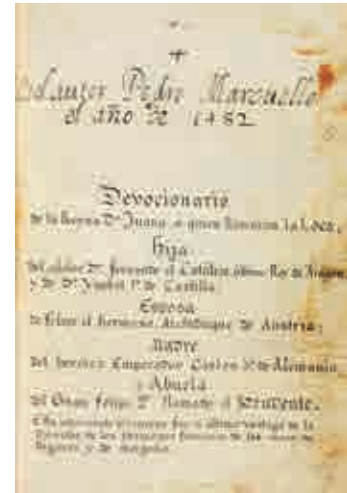 El autor Pedro Marcuello
el año de 1482
Devocionario
de la Reyna Dª Juana, a quien llamaron la Loca,
Hija
del célebre Dn. Fernando el Católico último Rey de Aragon
y de Dª Ysabel 1ª de Castilla;
Esposa
de Felipe el hermoso Archiduque de Austria;
Madre
del heroico Emperador Carlos Vº de Alemania
y Abuela
del Gran Felipe 2º llamado el Prudente.
de los
y de